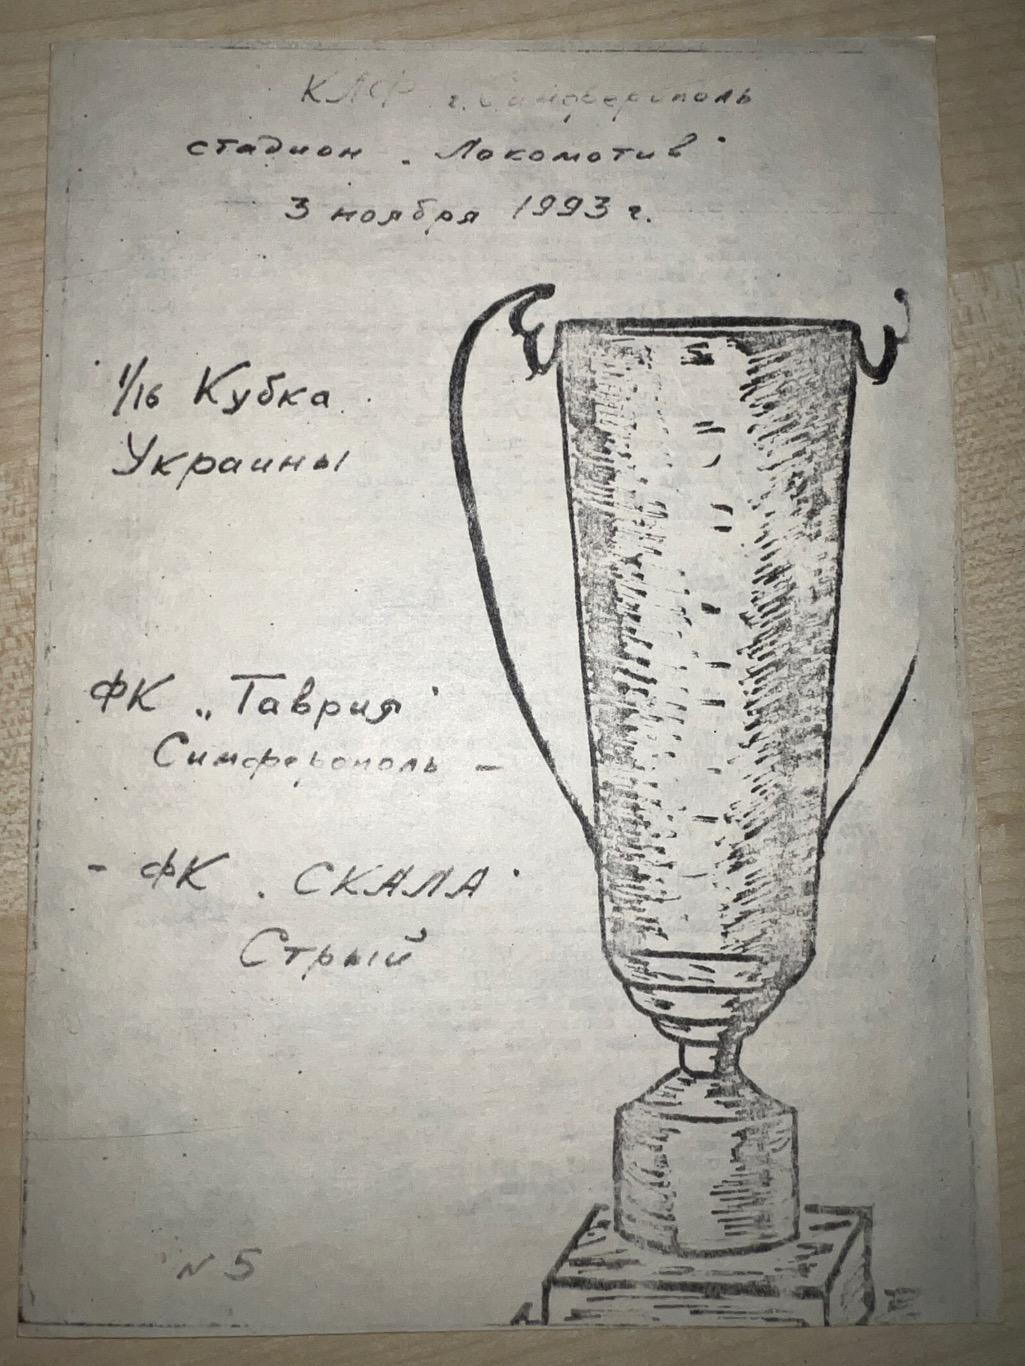 КЛФ г. Симферополь
стадион "Локомотив"
3 ноября 1993 г.
1/16 Кубка
Украины
ФК „Таврия"
Симферополь -
- ФК "СКАЛА"
Стрый
N 5